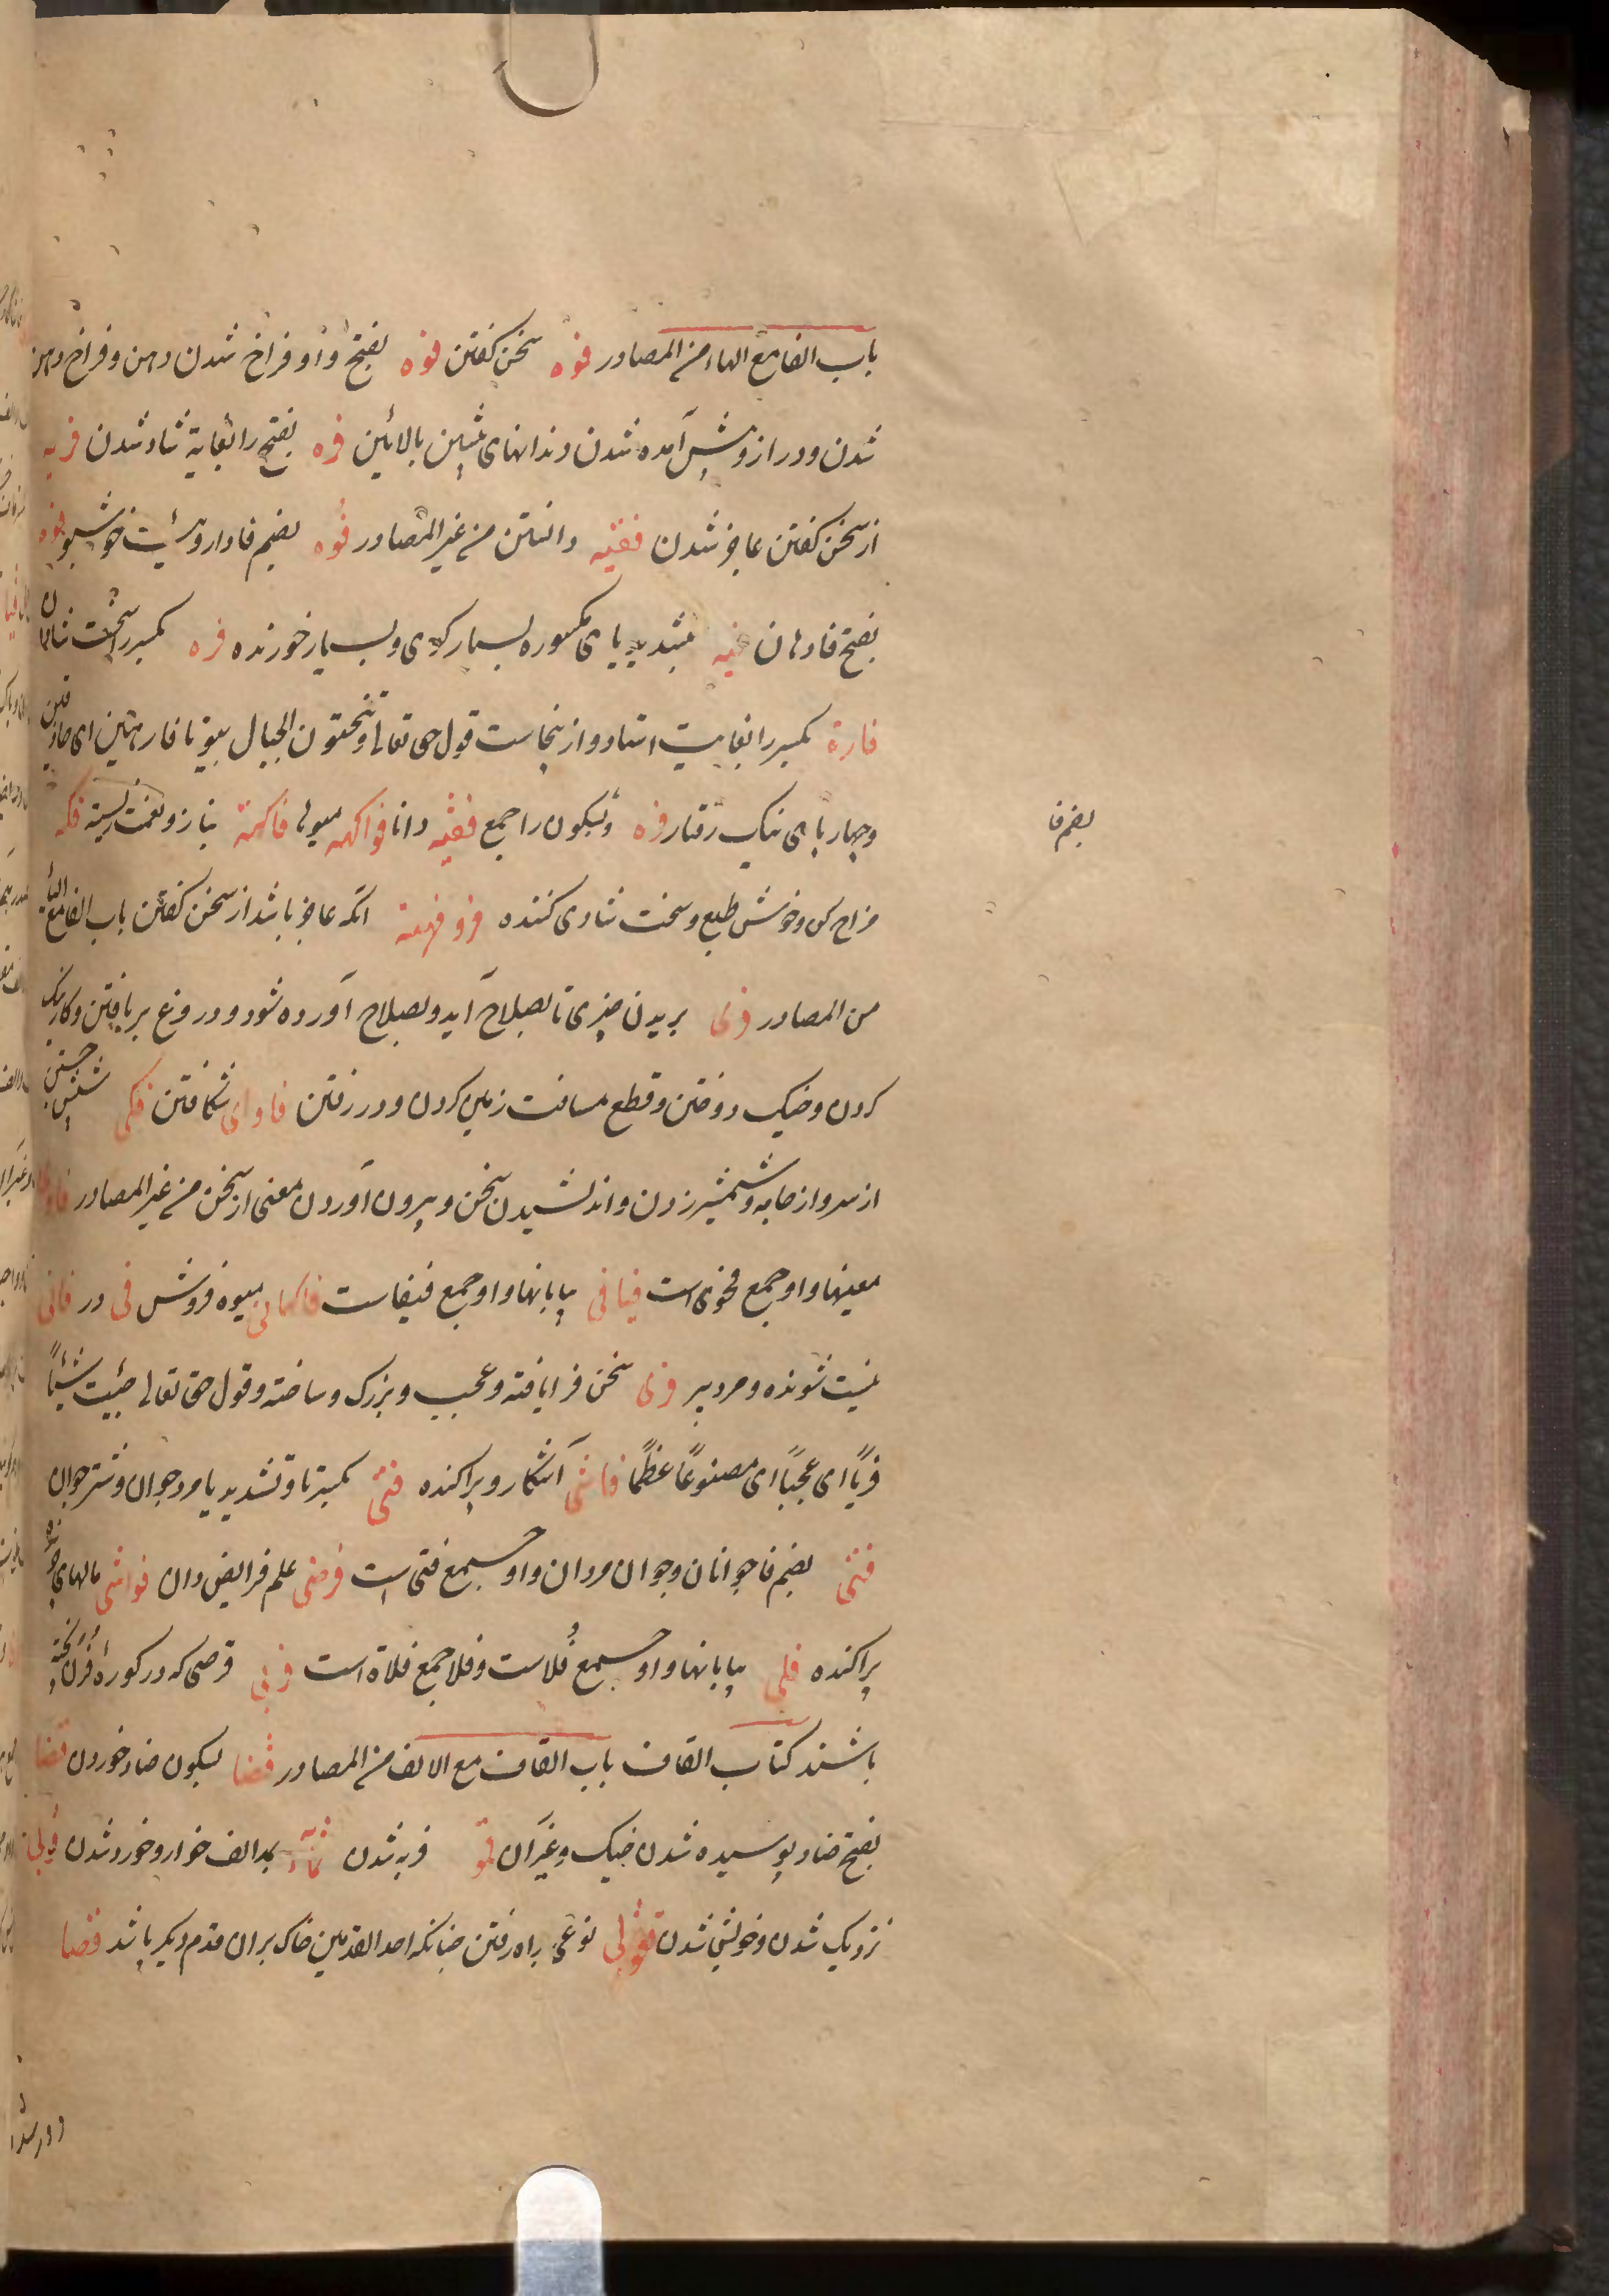 باب الفا مع الهاء من المصادر فوه سخن گفتن فوه بفتح واو فراخ شدن دهن و فراخ دهن
شدن و دراز و پیش آمده شدن دندانهای پیشین بالائین فره بفتح را بغایة شاد شدن فریه
از سخن گفتن عاجز شدن فقیه دانستن من غیر المصادر فوه بضم فا داروئیست خوشبو فوه
بفتح فا دهان فیه بتشدید یای مکسوره بسیار کوی و بسیار خورنده فره بکسر را سخت شادان
فارة بکسر را بغایت استاد و ازینجاست قول حق تعالی و تنحتون الجبال بیوتا فارهین ای حاذقین
و چهار پای نیک رفتار فره و بسکون را جمع فقیه دانا فواکه میوها فاکهة بناز و نعمت زیسته فکه
مزاح کن و خوش طبع و سخت شادی کننده فه و فهیه آنکه عاجز باشد از سخن گفتن باب الفا مع الیاء
من المصادر فری بریدن چیزی تا بصلاح آید و بصلاح آورده شود و دروغ بر بافتن و کار نیک
کردن و خیک دوختن و قطع مسافت زمین کردن و در رفتن فاوای شکافتن فلی شپش جستن
از سر و از جامه و شمشیر زدن و اندیشیدن سخن و بیرون آوردن معنی از سخن من غیر المصادر
معنیها و او جمع فحوی است فیافی بیابانها و او جمع فیفاست فاکهانی میوه فروش فی در فانی
نیست شونده و مرد پیر فری سخن فرا بافته و عجیب و بزرک و ساخته و قول حق تعالی جئیت شیئاً
فریاً ای عجباً ای مصنوعاً عظیما فاشی آشکار و پراکنده فتی بکسر تا و تشدید یا مرد جوان و شتر جوان
فتی بضم فا جوانان و جوان مردان و او جمع فتی است فرضی علم فرایض دان فواشی مالهای
پراکنده فلی بیابانها و او جمع فلاست و فلا جمع فلاة است فرنی قرصی که در کوره فرن پخته
باشند کتاب القاف باب القاف مع الالف من المصادر قضا بسکون ضاد خوردن قضا
بفتح ضاد پوسیده شدن خیک و غیر آن قمو فربه شدن قماء بمد الف خوار و خورد شدن قربی
نزدیک شدن و خویش شدن قعولی نوعی براه رفتن چنانکه احد القدمین خاک بران قدم دیکر پاشد قصا
بضم فا